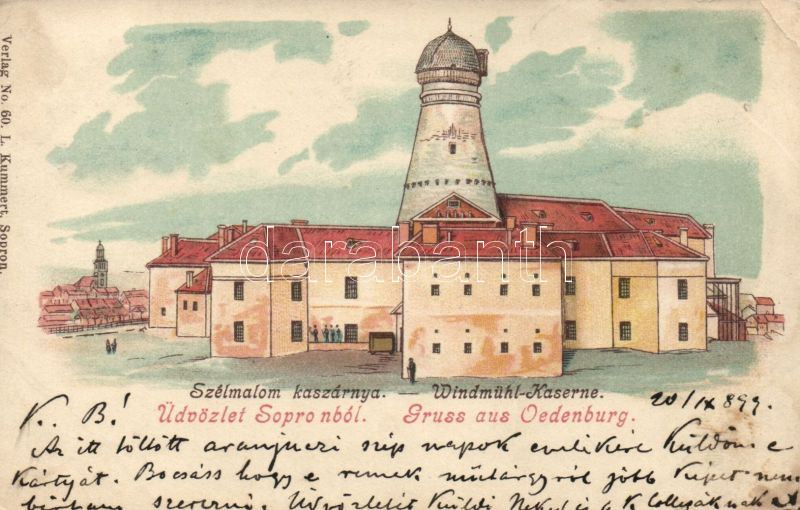 Verlag No. 60. L. Kummert, Sopron.
darabanth.com
Szélmalom kaszárnya. — Windmühl-Kaserne.
Üdvözlet Sopronból. Gruss aus Oedenburg.
20/IX 899.
K. B!
Az itt töltött aranjuezi szép napok emlékére küldöm e
kártyát. Bocsáss hogy e remek műtárgyról jobb képet nem
birtam szerezni. Üdvözletét küldi Neked és a K. Collegáknak